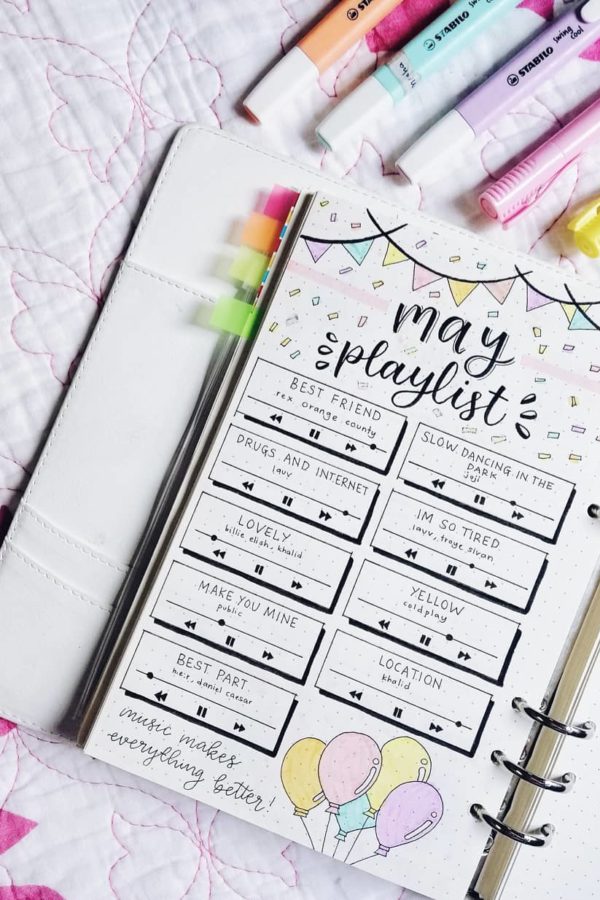 STABILO
STABILO swing cool
STABILO swing cool
may
playlist
BEST FRIEND
rex orange county
DRUGS AND INTERNET
lauv
LOVELY
billie elish, khalid
MAKE YOU MINE
public
BEST PART
h.e.r, daniel caesar
SLOW DANCING IN THE
DARK
joji
IM SO TIRED
lauv, troye sivan
YELLOW
coldplay
LOCATION
khalid
music makes
everything better!